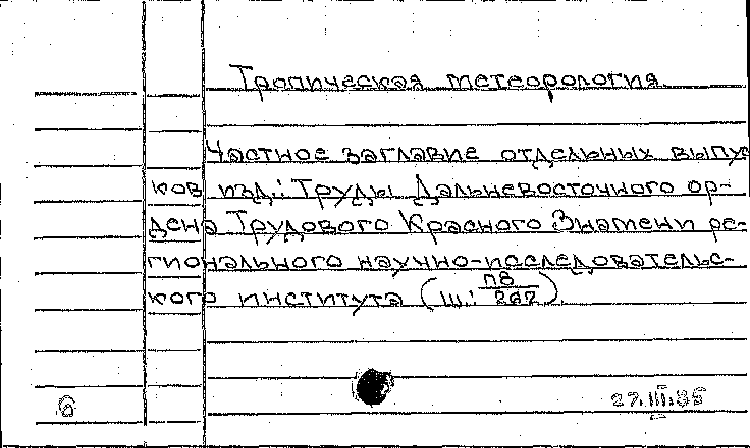 Тропическая метеорология
Частное заглавие отдельных выпус
ков изд.: Труды Дальневосточного ор-
дена Трудового Красного Знамени ре-
гионального научно-исследовательс-
кого института (Ш.: П8/262).
6
27.III.86